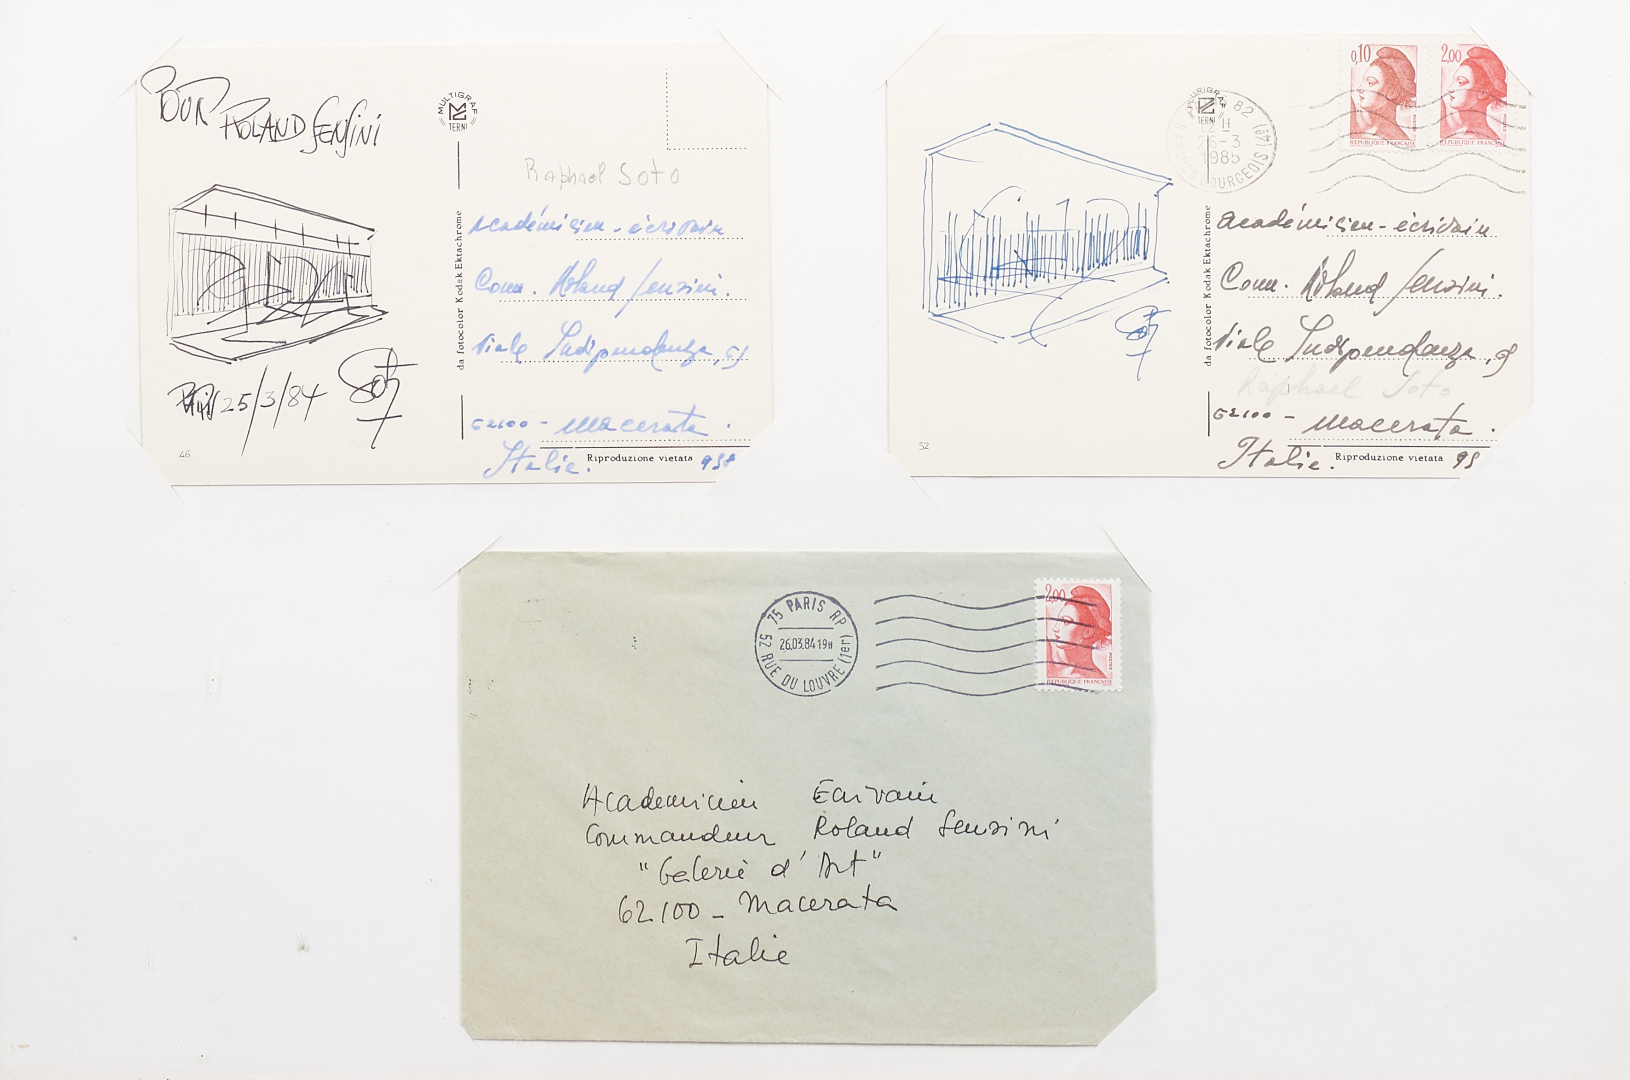 POUR ROLAND SENSINI
MULTIGRAF
TERNI
Raphael Soto
da fotocolor Kodak Ektachrome
Académicien - écrivain
Comm. Roland Sensini.
Viale Indipendenza,
62100 - Macerata.
Italie.
25/3/84 Soto
46
Riproduzione vietata 958
PLURIGRAF
TERNI
82
12 H
26-3
1985
FRANCS BOURGEOIS (4E)
0,10
REPUBLIQUE FRANÇAISE
POSTES
2,00
REPUBLIQUE FRANÇAISE
POSTES
da fotocolor Kodak Ektachrome
Académicien - écrivain
Comm. Roland Sensini.
Viale Indipendenza,
Raphael Soto
62100 - Macerata.
Italie.
Soto
52
Riproduzione vietata
75 PARIS RP
26.03.84 19H
52 RUE DU LOUVRE (1er)
2,00
REPUBLIQUE FRANÇAISE
POSTES
Academicien Ecrivain
Commandeur Roland Sensini
"Galerie d'Art"
62100 - Macerata
Italie